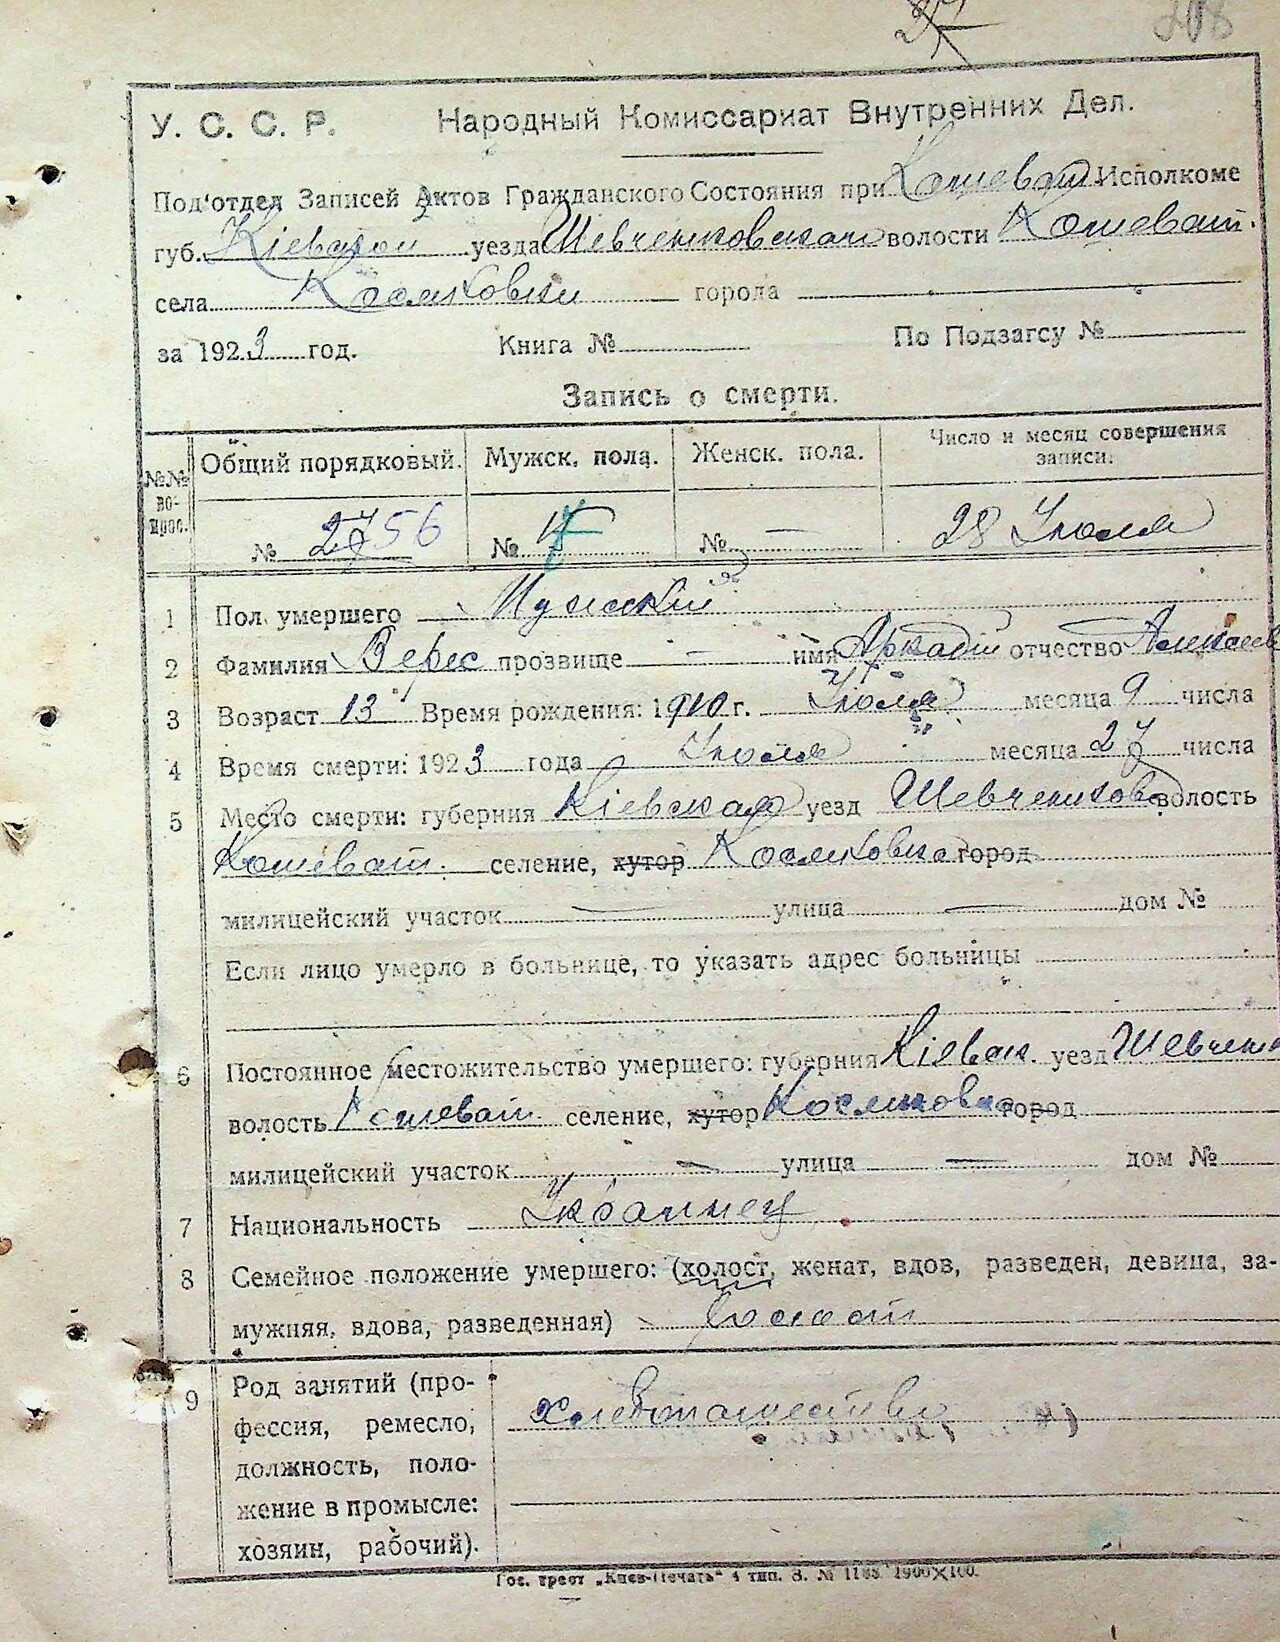 208
У. С. С. Р. Народный Комиссариат Внутренних Дел.
Под'отдел Записей Актов Гражданского Состояния при Кошеват. Исполкоме
губ. Кіевской уезда Шевченковская волости Кошеват.
села Косяковки города
за 1923 год. Книга № По Подзагсу №
Запись о смерти.
№№ вопрос. Общий порядковый. Мужск. пола. Женск. пола. Число и месяц совершения записи.
№ 56 № № — 28 Июля
1 Пол умершего Мужской
2 Фамилия Верес прозвище — имя Аркадій отчество Алексеев
3 Возраст 13 Время рождения: 1910 г. Июля месяца 9 числа
4 Время смерти: 1923 года Июля месяца 27 числа
5 Место смерти: губерния Кіевская уезд Шевченков волость
Кошеват. селение, хутор Косяковка город
милицейский участок — улица — дом №
Если лицо умерло в больнице, то указать адрес больницы
6 Постоянное местожительство умершего: губерния Кіевск. уезд Шевченк
волость Кошеват. селение, хутор Косяковка город
милицейский участок — улица — дом №
7 Национальность Украинец
8 Семейное положение умершего: (холост, женат, вдов, разведен, девица, за-
мужняя, вдова, разведенная) Холост
9 Род занятий (про- хлебопашество
фессия, ремесло,
должность, поло-
жение в промысле:
хозяин, рабочий).
Гос. трест „Киев-Печать“ 4 тип. З. № 1188. 1900✕100.